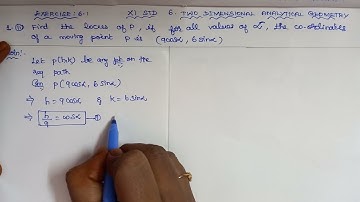 EXERCISE: 6.1 XI STD 6. TWO DIMENSIONAL ANALYTICAL GEOMETRY
1. (ii) Find the locus of P, if for all values of α, the co-ordinates
of a moving point P is (9cosα, 6sinα)
Soln:-
Let P(h,k) be any pt on the
req path
Gn P(9cosα, 6sinα)
⇒ h = 9cosα & k = 6sinα
⇒ h/9 = cosα —①